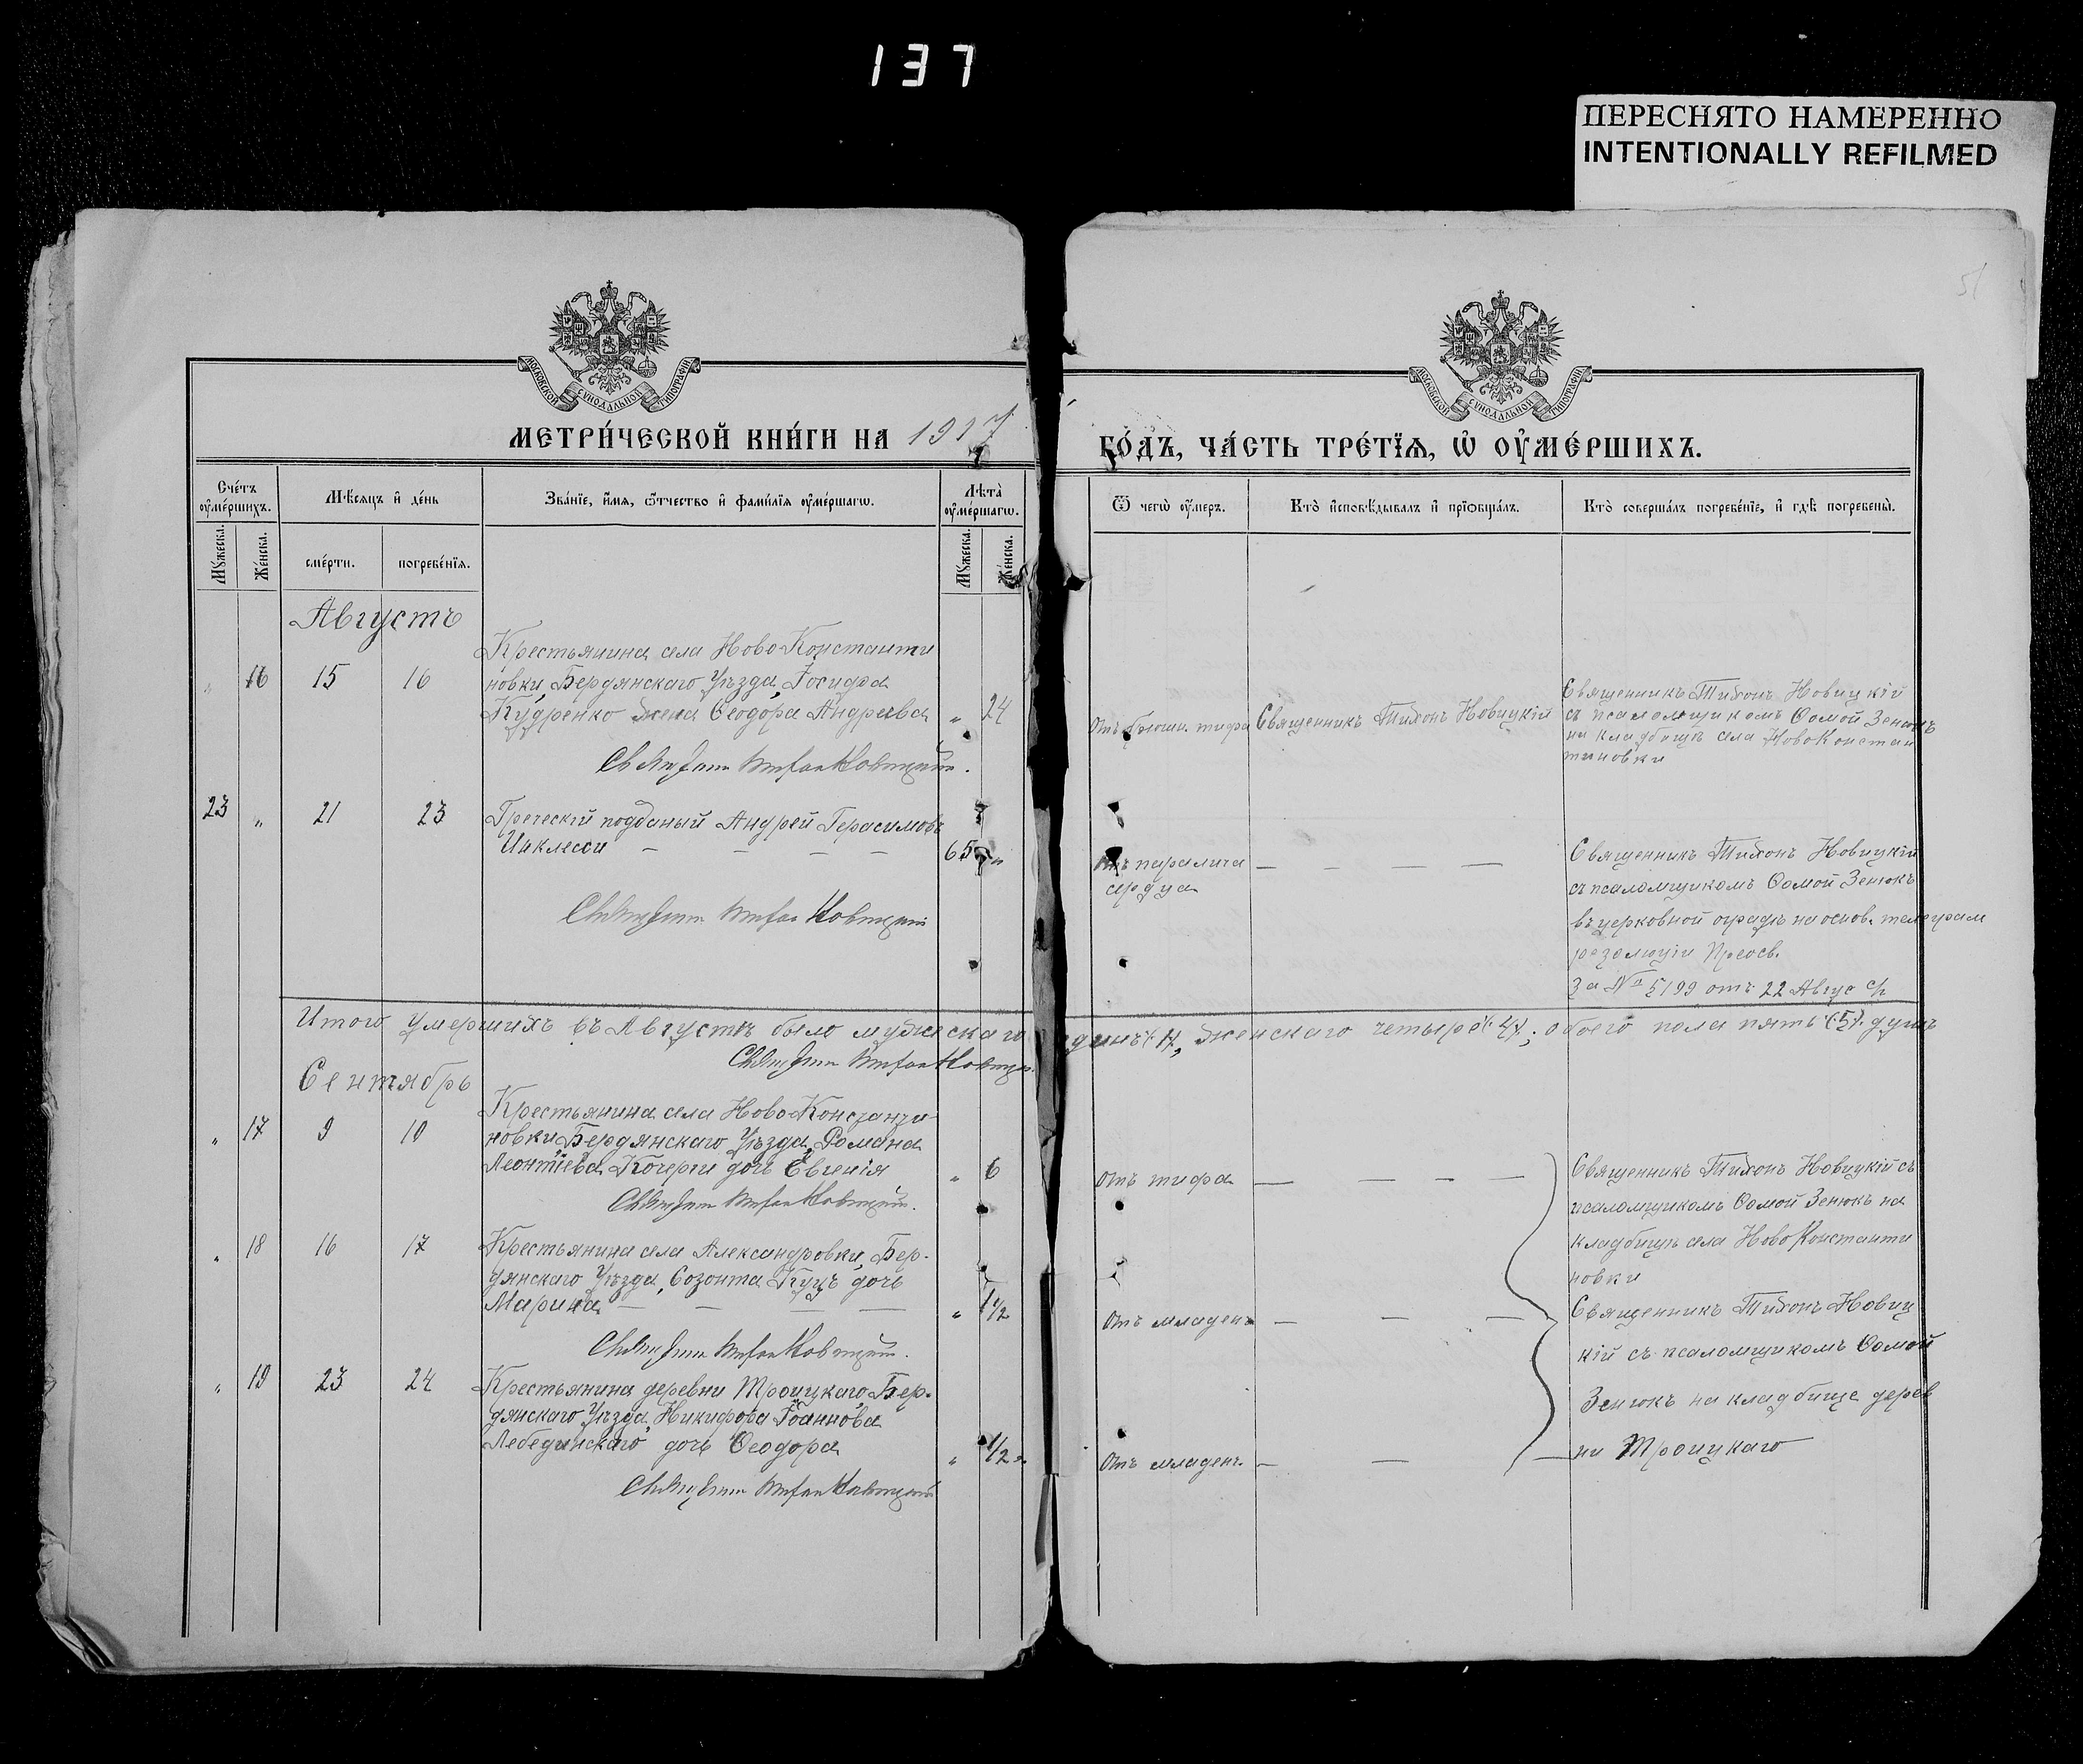 137
ПЕРЕСНЯТО НАМЕРЕННО
INTENTIONALLY REFILMED
51
МОСКОВСКОЙ СѴНОДАЛЬНОЙ ТИПОГРАФІИ
МОСКОВСКОЙ СѴНОДАЛЬНОЙ ТИПОГРАФІИ
МЕТРИ́ЧЕСКОЙ КНИ́ГИ НА 1917
ГО́ДЪ, ЧА́СТЬ ТРЕ́ТЇѦ, Ѡ҆ ОУ҆МЕ́РШИХЪ.
Сче́тъ оу҆ме́ршихъ.
Мѣ́сяцъ и҆ де́нь
Зва́нїе, и҆́мя, ѻ҆́тчество и҆ фами́лїя оу҆ме́ршагѡ.
Лѣ́та оу҆ме́ршагѡ.
Ѿ чегѡ̀ оу҆́меръ.
Кто̀ и҆сповѣ́дывалъ и҆ прїѡбща́лъ.
Кто̀ соверша́лъ погребе́нїе, и҆ гдѣ̀ погребены̀.
Мꙋ́жеска. Же́нска. сме́рти. погребе́нїя. Мꙋ́жеска. Же́нска.
Августъ
Крестьянина села Ново-Константи
" 16 15 16 новки, Бердянскаго Уѣзда, Іосифа
Кудренко жена Ѳеодора Андреева " 24
Отъ брюшн. тифа Священникъ Тихонъ Новицкій
Священникъ Тихонъ Новицкій
съ псаломщикомъ Ѳомой Зенюкъ
на кладбищѣ села НовоКонстан
тиновки
Новицкій.
23 " 21 23 Греческій подданый Андрей Герасимовъ
Инклесси — — — — 65 "
Отъ паралича — — — —
сердца
Священникъ Тихонъ Новицкій
съ псаломщикомъ Ѳомой Зенюкъ
въ церковной оградѣ на основ. телеграм
резолюціи Преосв.
За № 5199 отъ 22 Авгус с/г
Новицкій
Итого умершихъ въ Августѣ было мужескаго одинъ (1), женскаго четыре (4); обоего пола пять (5) душъ
Новицкій
Сентябрь
Крестьянина села Ново-Константи
" 17 9 10 новки, Бердянскаго Уѣзда, Романа
Леонтіева Кочерги дочь Евгенія " 6
отъ тифа — — — —
Священникъ Тихонъ Новицкій съ
псаломщикомъ Ѳомой Зенюкъ на
кладбищѣ села НовоКонстанти
новки
Новицкій.
" 18 16 17 Крестьянина села Александровки, Бер-
дянскаго Уѣзда, Созонта Куцъ дочь
Марина — — — — " 1 1/2
отъ младенч — — —
Священникъ Тихонъ Новиц
кій съ псаломщикомъ Ѳомой
Зенюкъ на кладбище дерев
ни Троицкаго
Новицкій.
" 19 23 24 Крестьянина деревни Троицкаго, Бер-
дянскаго Уѣзда, Никифора Іоаннова
Лебединскаго дочь Ѳеодора " 1/2
Отъ младенч. — — —
Новицкій